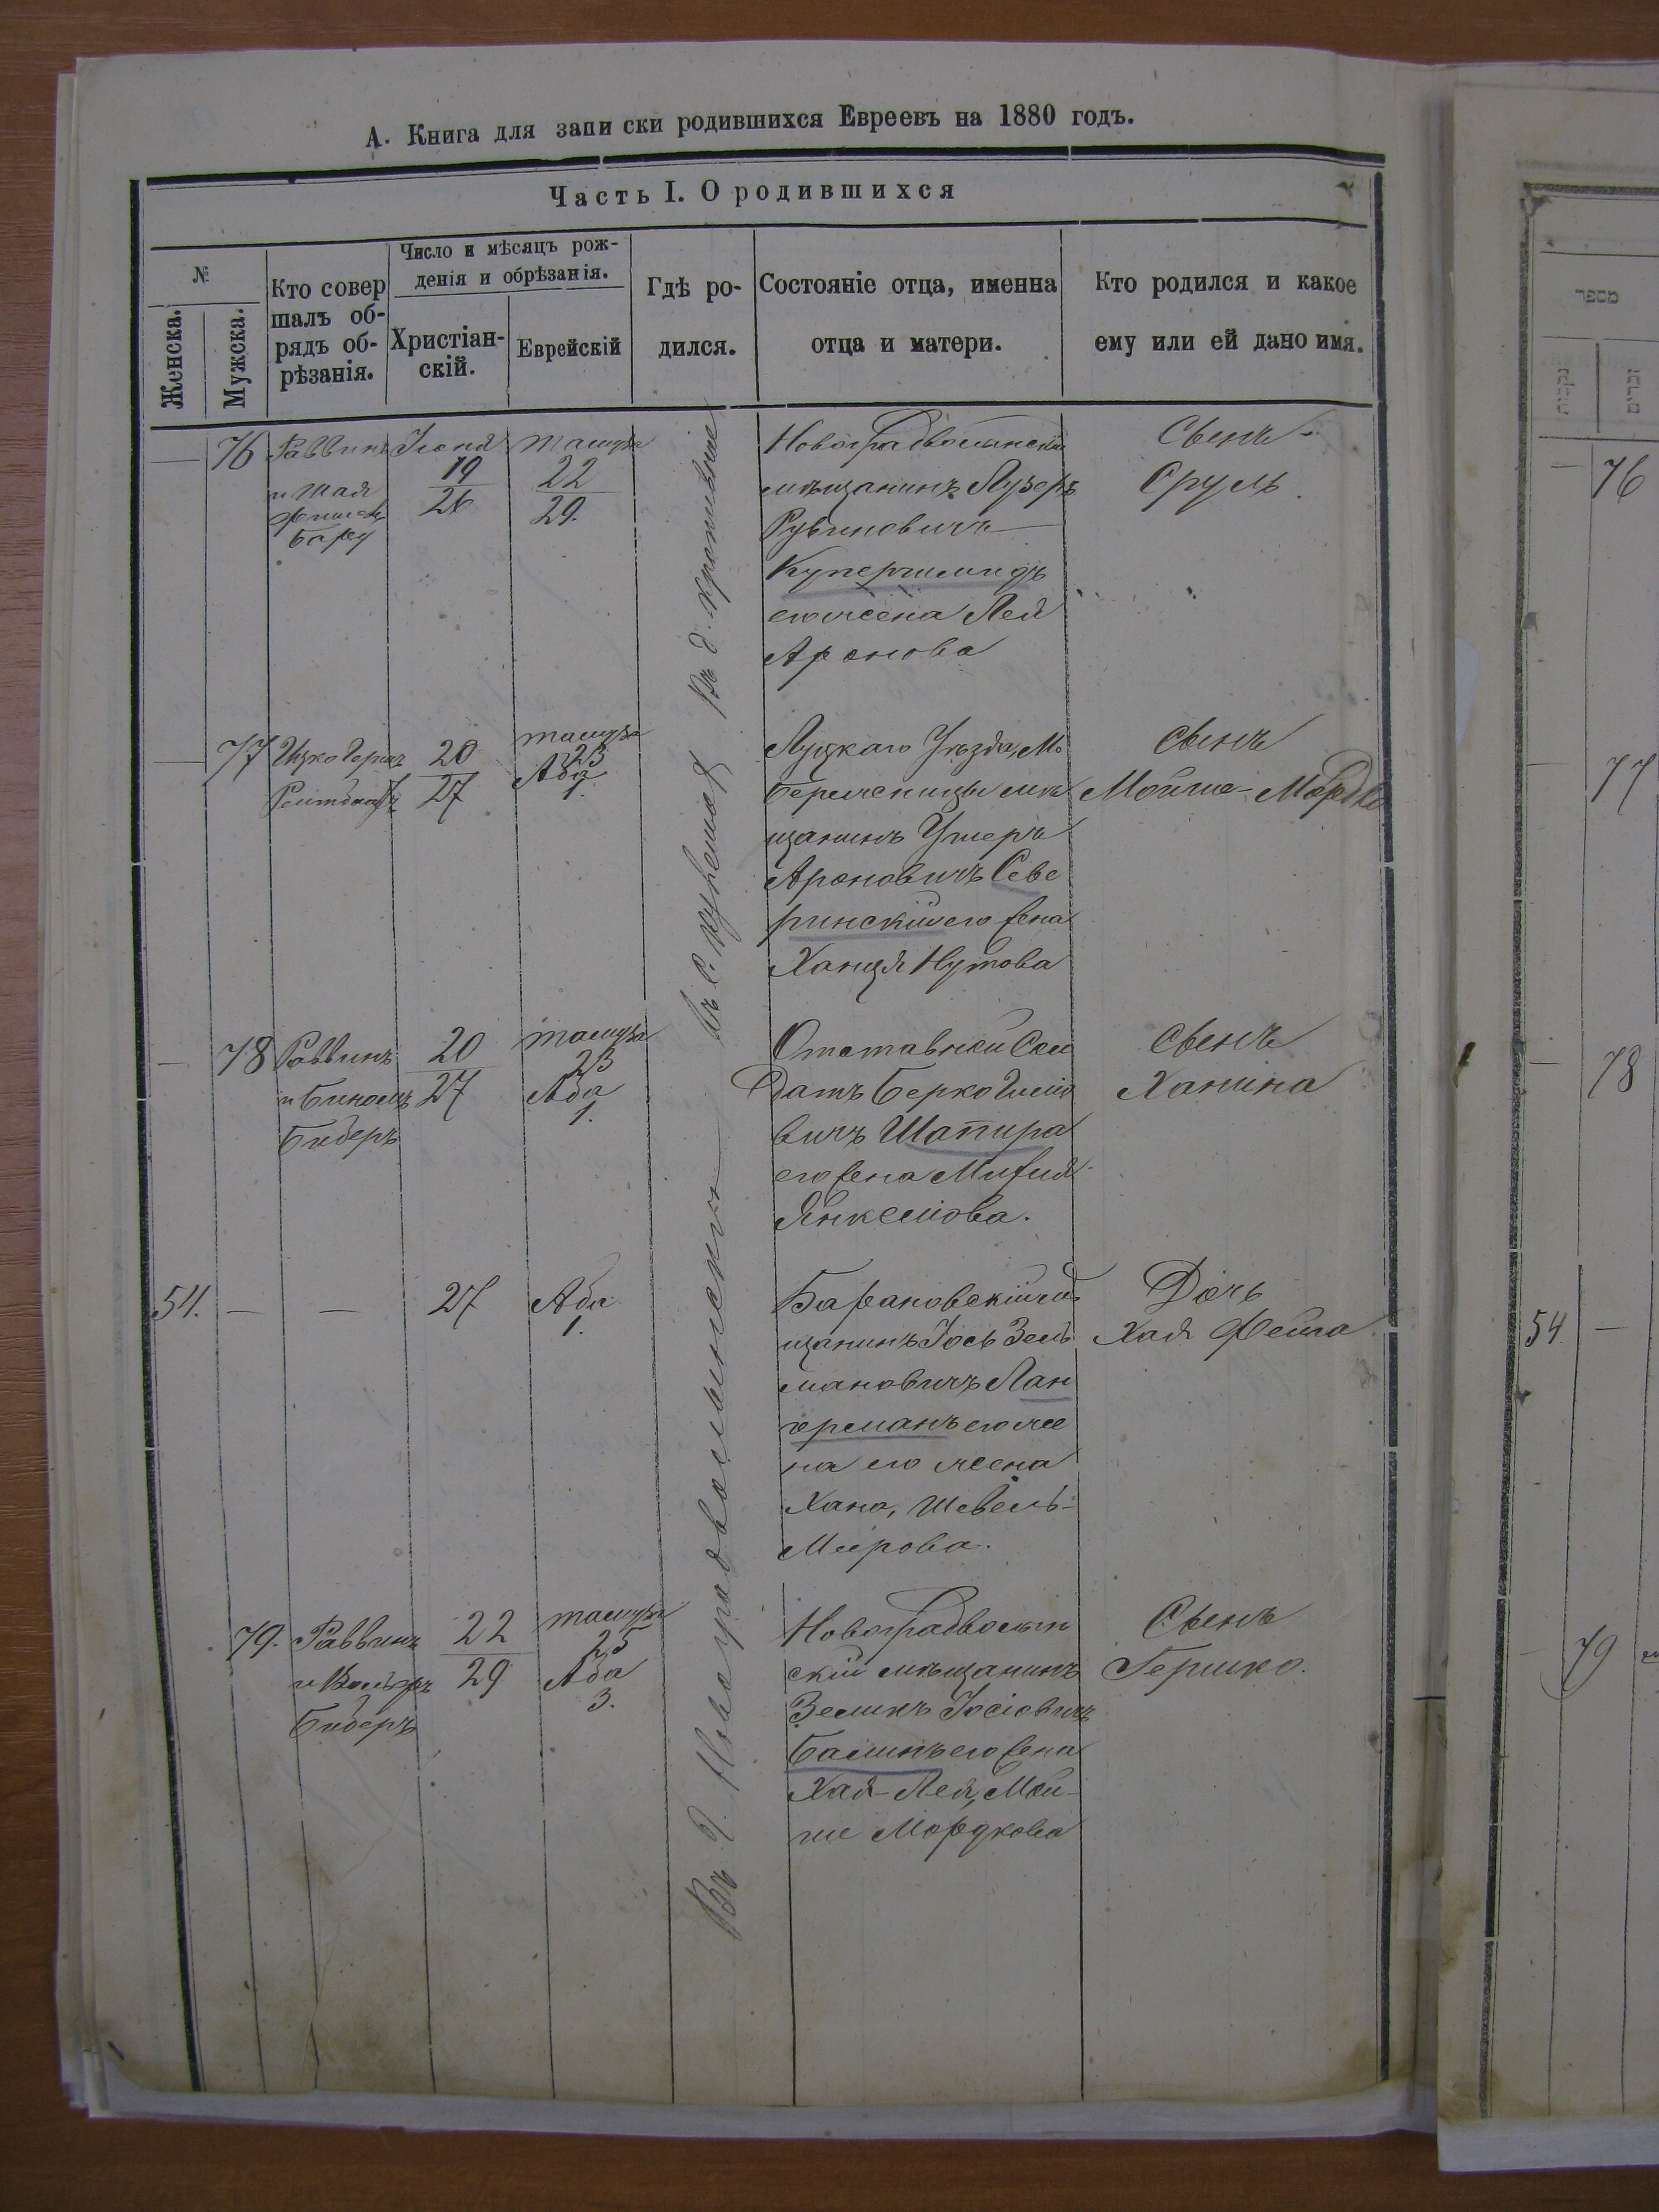 А. Книга для записки родившихся Евреевъ на 1880 годъ.
Часть I. О родившихся
№
Женска.
Мужска.
Кто совер
шалъ об-
рядъ об-
рѣзанія.
Число и мѣсяцъ рож-
денія и обрѣзанія.
Христіан-
скій.
Еврейскій
Гдѣ ро-
дился.
Состояніе отца, именна
отца и матери.
Кто родился и какое
ему или ей дано имя.
— 76
Раввинъ
и Шая
Іюня
19
26
Тамуза
22
29.
Въ д.
Новоградволынскій
мѣщанинъ Лузеръ
Рувиновичъ
Купершмидъ
его жена Лея
Аронова
Сынъ
Сруль
— 77
Ицко Герш
20
27
тамуза
23
Ава
1.
Въ с.
Луцкаго Уѣзда, М.
Бережницы мѣ
щанинъ Ушеръ
Ароновичъ Севе
ринскій его жена
Ханця Нутова
Сынъ
Мойше-Мордко
— 78
Раввинъ
и Биномъ
Бидеръ
20
27
тамуза
23
Ава
1.
Отставной Сол
датъ Берко
вичъ Шапира
его жена
Янкелiова.
Сынъ
Ханина
54. — —
27
Ава
1.
Въ г. Новоградволынскѣ
Барановскій мѣ
щанинъ Іось Зель
мановичъ Лан
германъ его же
на его жена
Хана, Шевель-
Меерова.
Дочь
Хая Фейга
79.
Раввинъ
Бидеръ
22
29
тамуза
25
Ава
3.
Новоградволын
скій мѣщанинъ
Зеликъ Іосіовичъ
его жена
Хая-Лея, Мой-
ше Мордкова
Сынъ
Гершко.
מספר
— 76
— 77
— 78
54. —
— 79